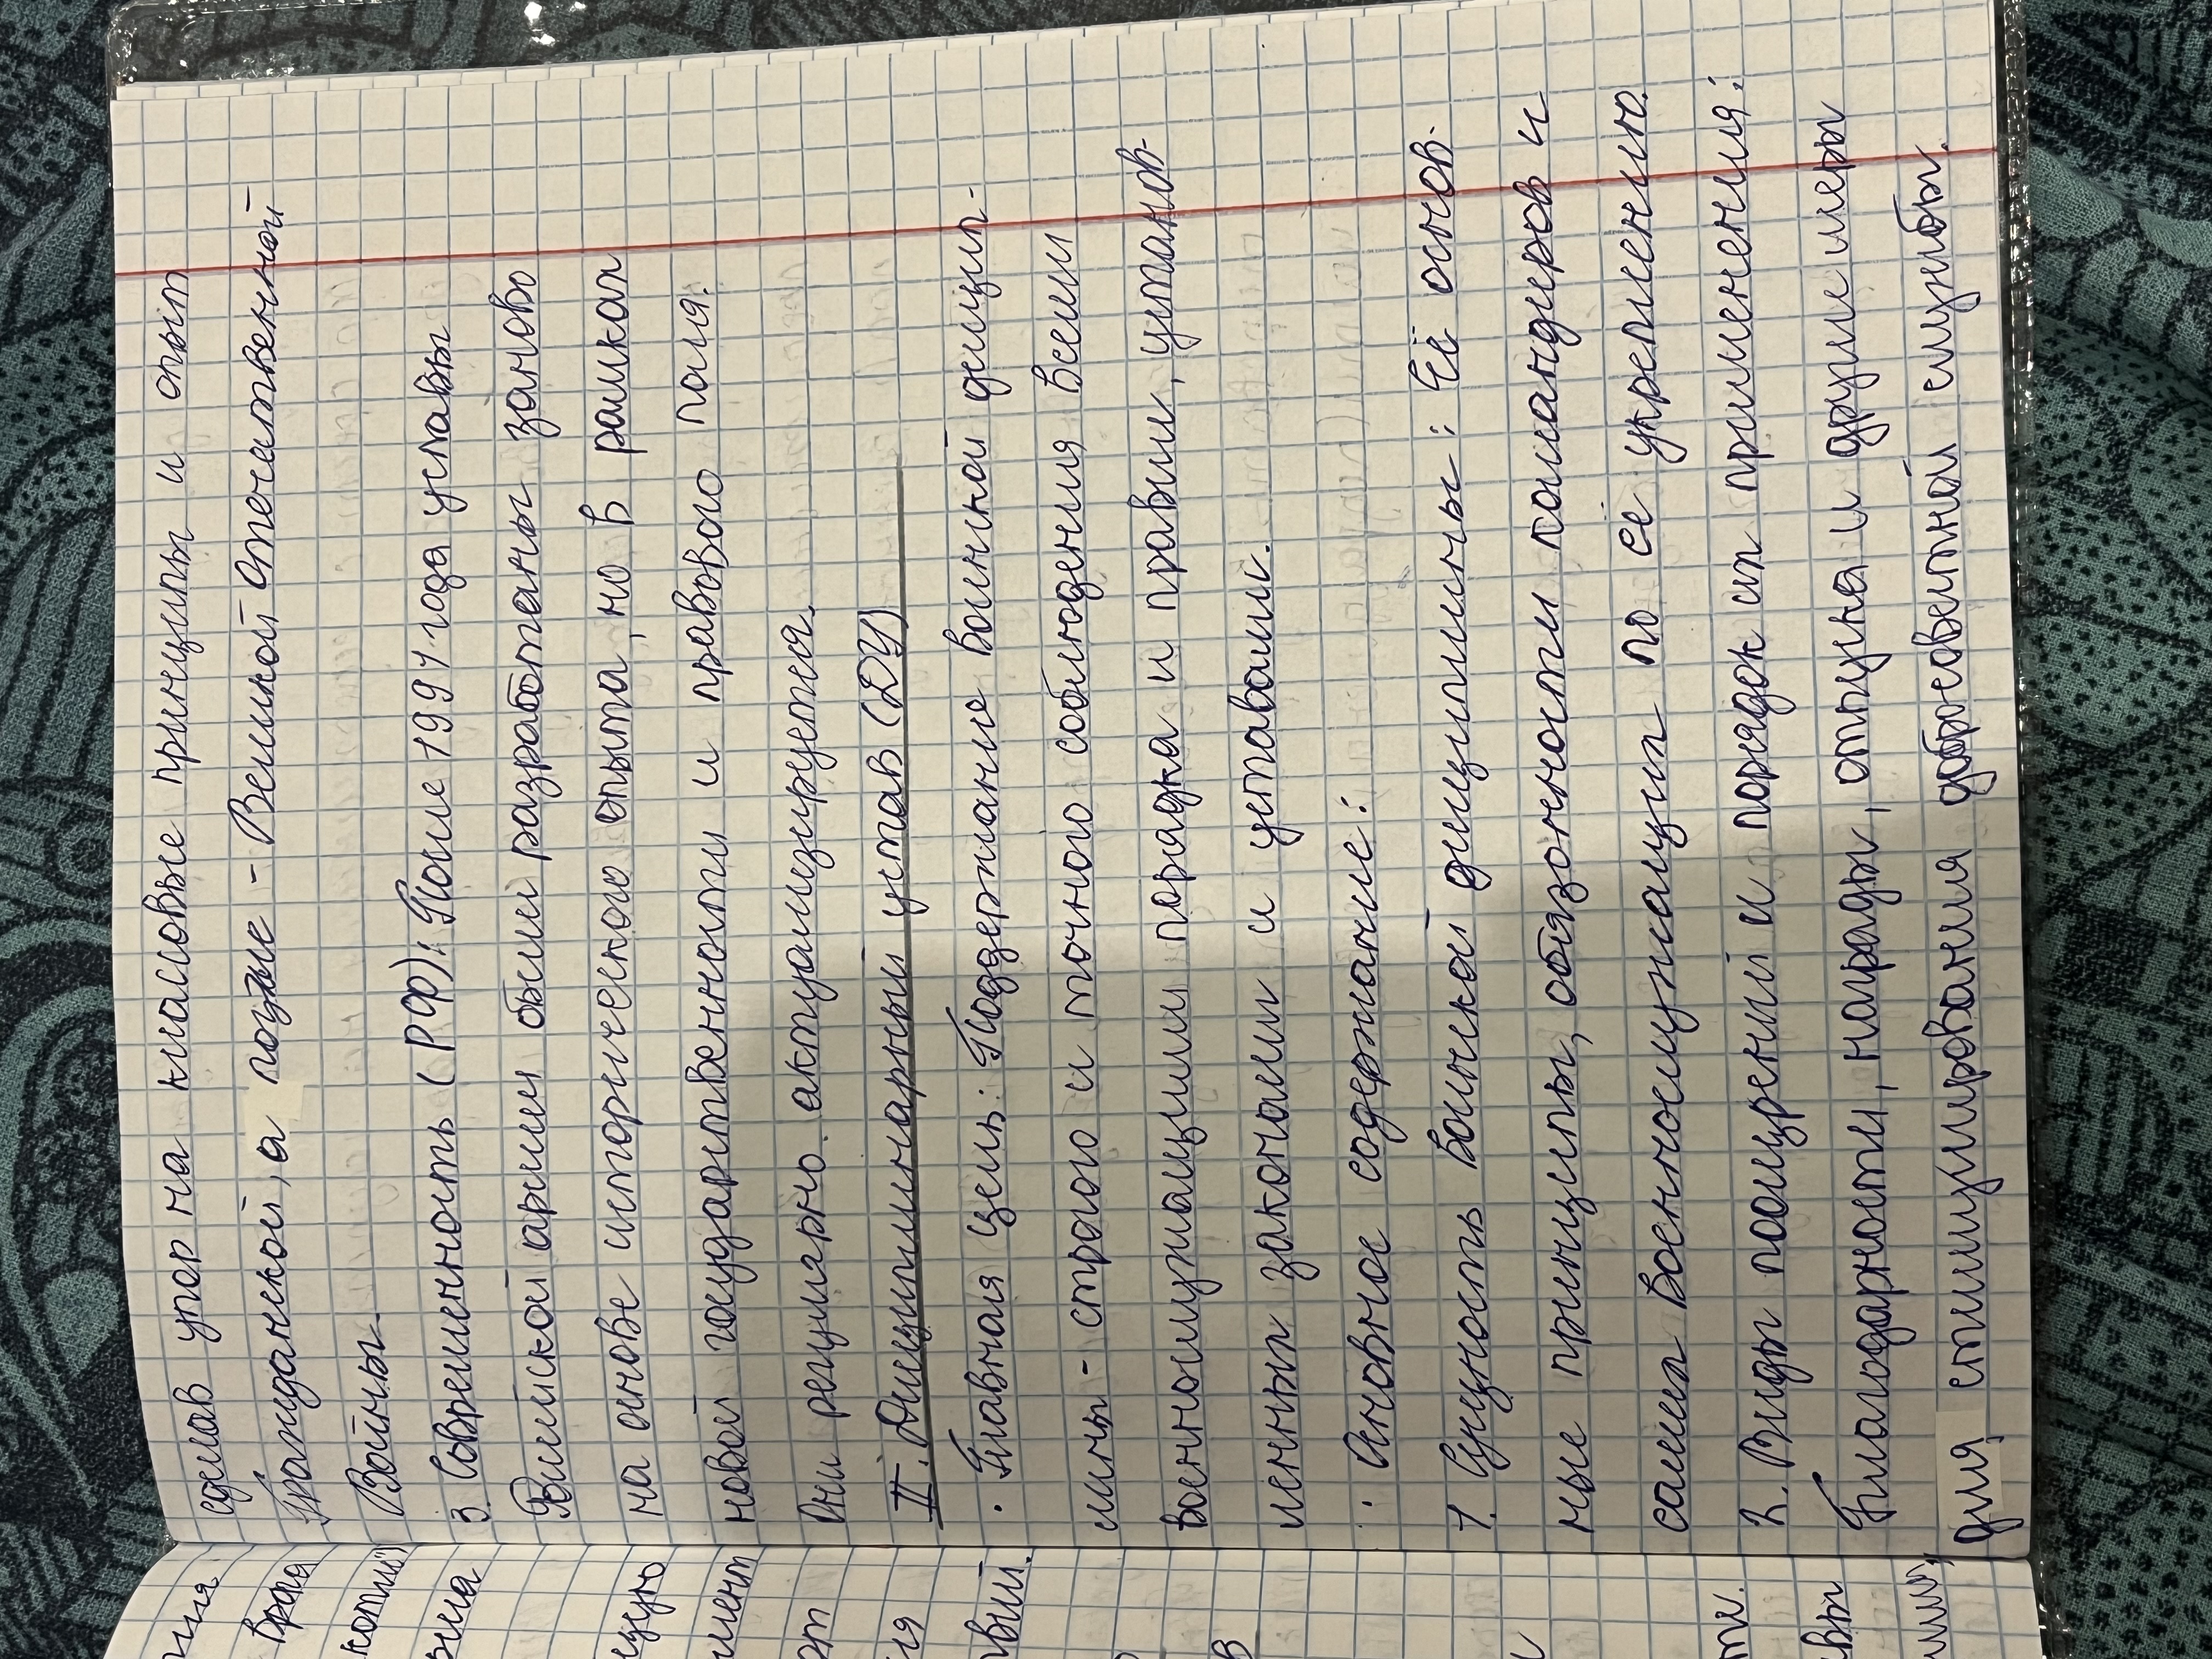 сделав упор на классовые принципы и опыт
Гражданской, а позже - Великой Отечественной
Войны.
3. Современность (РФ): После 1991 года уставы
Российской армии были разработаны заново
на основе исторического опыта, но в рамках
новой государственности и правового поля.
Они регулярно актуализируется.
II. Дисциплинарный устав (ДУ)
· Главная цель: Поддержание воинской дисцип-
лины - строго и точного соблюдения всеми
военнослужащими порядка и правил, установ-
ленных законами и уставами.
: Основное содержание:
1. Сущность воинской дисциплины: Её основ-
ные принципы, обязонности командиров и
самих военнослужащих по её укреплению.
2. Виды поощрений и порядок их применения:
Благодарности, награды, отпуска и другие меры
для стимулирования добросоветной службы.
ния
время
ующую
ия
вий.